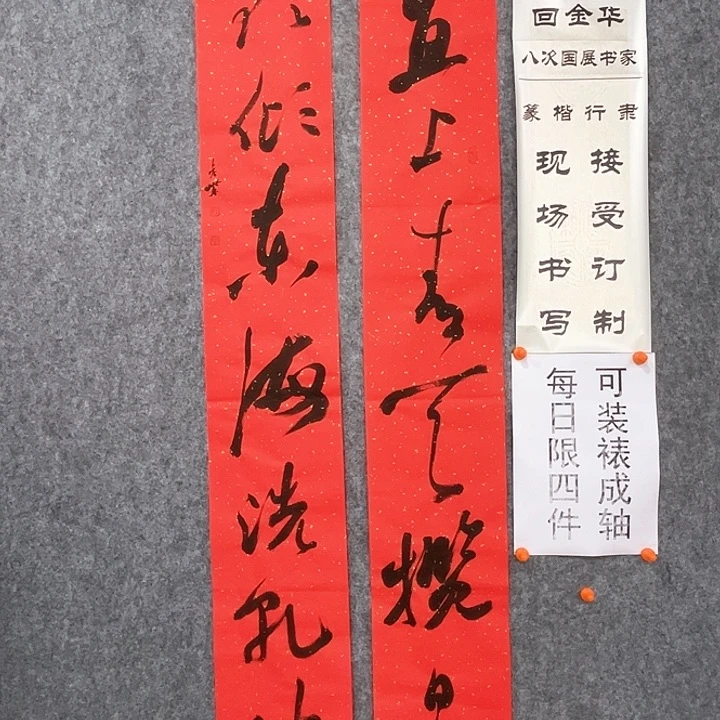 回金华
八次国展书家
篆楷行隶
接受订制
现场书写
可装裱成轴
每日限四件
直上青天揽日
倾东海洗乾